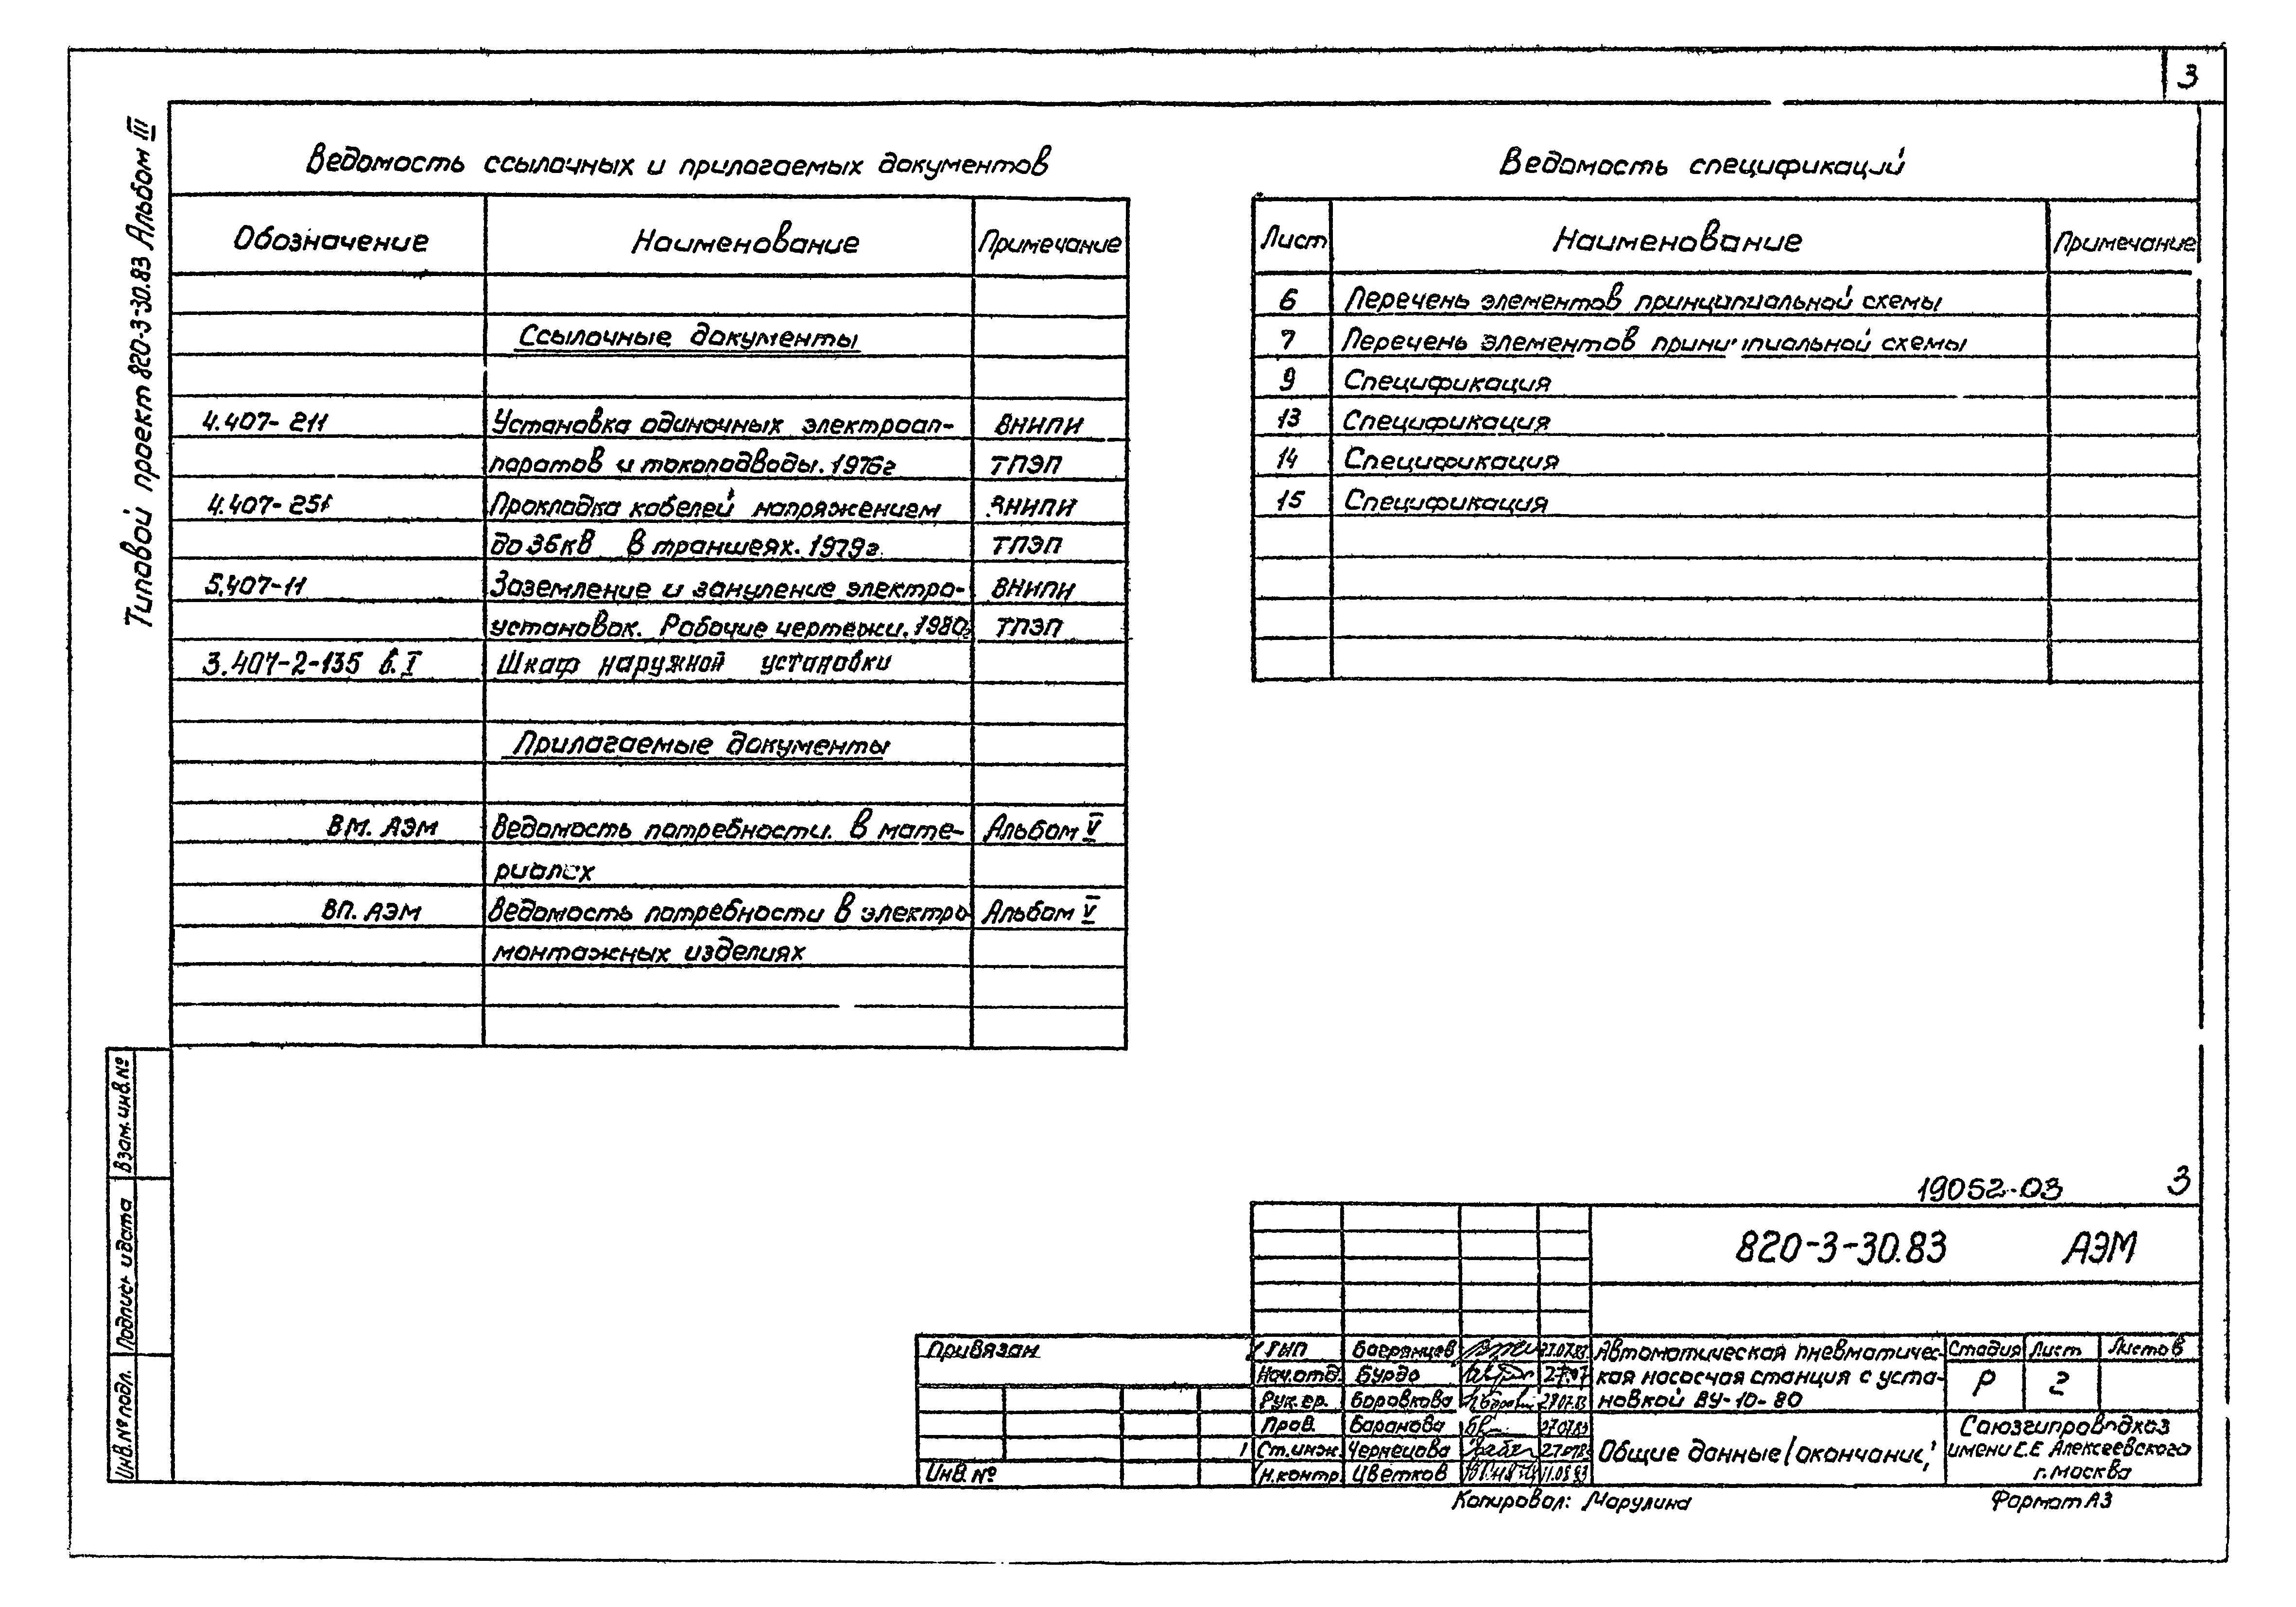 3
Типовой проект 820-3-30.83 Альбом III
Ведомость ссылочных и прилагаемых документов
Обозначение Наименование Примечание
Ссылочные документы
4.407-211 Установка одиночных электроап- ВНИПИ
паратов и токоподводы. 1976г ТПЭП
4.407-251 Прокладка кабелей напряжением ВНИПИ
до 35кВ в траншеях. 1979г. ТПЭП
5.407-11 Заземление и зануление электро- ВНИПИ
установок. Рабочие чертежи. 1980г ТПЭП
3.407-2-135 в. I Шкаф наружной установки
Прилагаемые документы
ВМ. АЭМ Ведомость потребности в мате- Альбом V
риалах
ВП. АЭМ Ведомость потребности в электро Альбом V
монтажных изделиях
Ведомость спецификаций
Лист Наименование Примечание
6 Перечень элементов принципиальной схемы
7 Перечень элементов принципиальной схемы
9 Спецификация
13 Спецификация
14 Спецификация
15 Спецификация
Взам. инв. №
Подпись и дата
Инв. № подл.
19052-03 3
820-3-30.83 АЭМ
Привязан
Инв. №
ГИП Багрянцев 27.07.83
Нач. отд. Бурдо 27.07
Рук. гр. Боровкова 27.07.83
Пров. Баранова 27.07.83
1 Ст. инж. Чернецова 27.07.83
Н. контр. Цветков 11.08.83
Автоматическая пневматичес-
кая насосная станция с уста-
новкой ВУ-10-80
Стадия Лист Листов
Р 2
Общие данные (окончание)
Союзгипроводхоз
имени Е.Е Алексеевского
г. Москва
Копировал: Марулина Формат А3